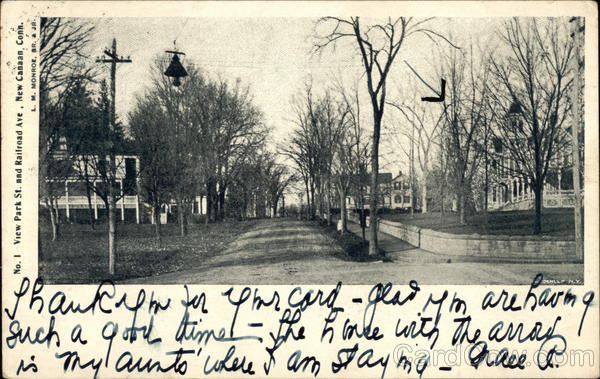 No. 1 View Park St. and Railroad Ave., New Canaan, Conn.
L. M. MONROE, BR. & JR.
Thank you for your card - glad you are having
such a good time - The house with the arrow
is my aunts' where I am staying - A.
CardCow.com